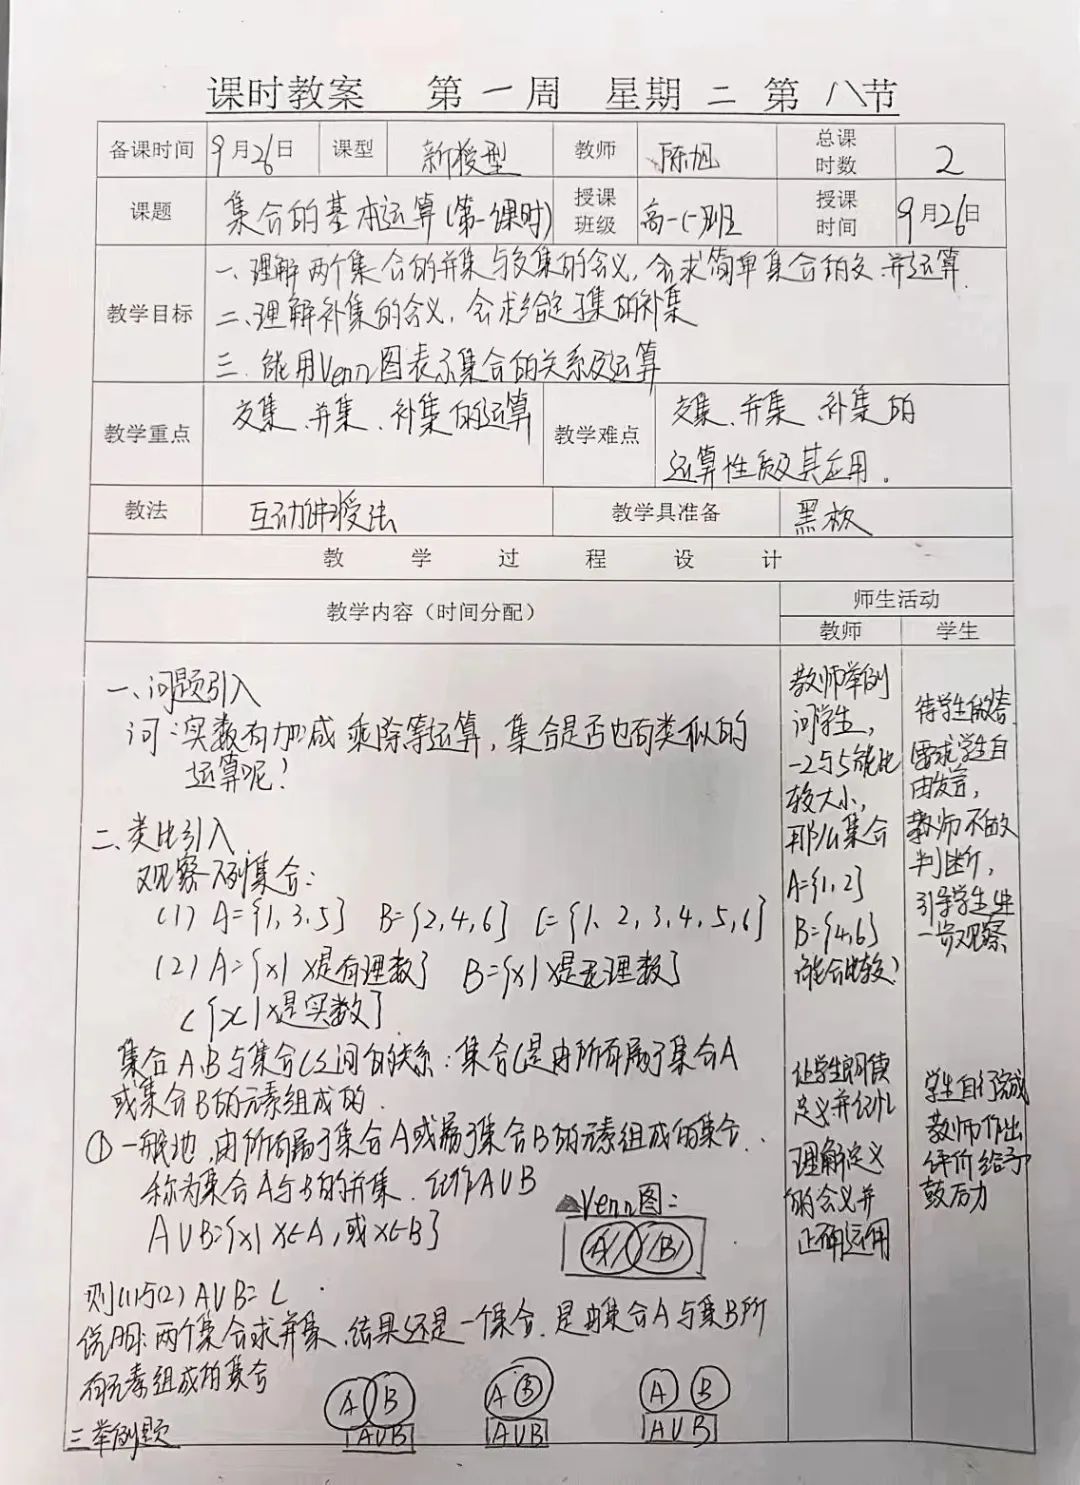 课时教案 第一周 星期二第八节
备课时间 9月26日 课型 新授型 教师 陈旭 总课时数 2
课题 集合的基本运算(第一课时) 授课班级 高一(一)班 授课时间 9月26日
教学目标
一、理解两个集合的并集与交集的含义,会求简单集合的交、并运算.
二、理解补集的含义,会求给定子集的补集
三、能用Venn图表示集合的关系及运算
教学重点 交集、并集、补集的运算 教学难点 交集、并集、补集的
运算性质及其应用。
教法 互动讲授法 教学具准备 黑板
教学过程设计
教学内容(时间分配) 师生活动
教师 学生
一、问题引入
问:实数有加减乘除等运算,集合是否也有类似的
运算呢!
二、类比引入
观察下列集合:
(1) A={1,3,5} B={2,4,6} C={1、2,3,4,5,6}
(2) A={x|x是有理数} B={x|x是无理数}
C{x|x是实数}
集合A,B与集合C之间的关系:集合C是由所有属于集合A
或集合B的元素组成的.
① 一般地,由所有属于集合A或属于集合B的元素组成的集合.
称为集合A与B的并集.记作A∪B
A∪B={x|x∈A,或x∈B}
Venn图:
A B
则(1)与(2) A∪B=C
说明:两个集合求并集,结果还是一个集合.是由集合A与集B所
有元素组成的集合
A B A B A B
A∪B A∪B A∪B
三举例题
教师举例
问学生,
-2与5能比
较大小,
那么集合
A={1,2}
B={4,6}
能否比较?
让学生朗读
定义并记忆
理解定义
的含义并
正确运用
待学生
学生自
由发言,
教师不做
判断,
引导学生进
一步观察
学生自行完成
教师作出
评价给予
鼓励